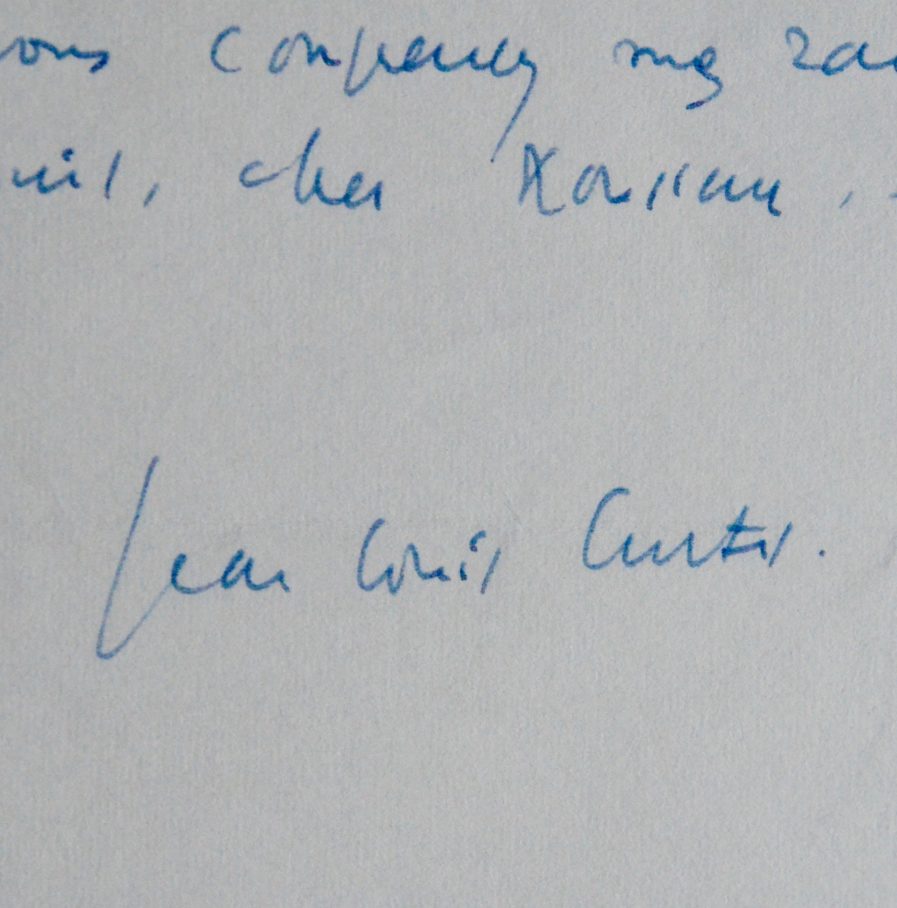 vous comprenez mes rai
suis, cher Monsieur,
Jean Louis Curtis.